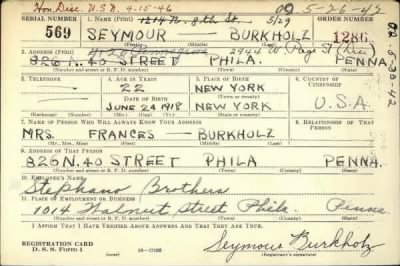 Hon Disc. U.S.N. 4-15-46
5-26-42
1214 N. 8th St. 5/29
SERIAL NUMBER 1. NAME (Print) ORDER NUMBER
569 SEYMOUR BURKHOLZ 1286
(First) (Middle) (Last)
2. ADDRESS (Print) 2944 W Page St
826 N. 40 STREET PHILA. PENNA.
(Number and street or R. F. D. number) (Town) (County) (State)
3. TELEPHONE 4. AGE IN YEARS 5. PLACE OF BIRTH 6. COUNTRY OF CITIZENSHIP
22 NEW YORK
DATE OF BIRTH (Town or county)
JUNE 24 1918 NEW YORK U.S.A.
(Exchange) (Number) (Mo.) (Day) (Yr.) (State or country)
7. NAME OF PERSON WHO WILL ALWAYS KNOW YOUR ADDRESS 8. RELATIONSHIP OF THAT PERSON
MRS. FRANCES BURKHOLZ
(Mr., Mrs., Miss) (First) (Middle) (Last)
9. ADDRESS OF THAT PERSON
826 N. 40 STREET PHILA PENNA.
(Number and street or R. F. D. number) (Town) (County) (State)
10. EMPLOYER'S NAME
Stephano Brothers
11. PLACE OF EMPLOYMENT OR BUSINESS
1014 Walnut Street Phila. Penna.
(Number and street or R. F. D. number) (Town) (County) (State)
I AFFIRM THAT I HAVE VERIFIED ABOVE ANSWERS AND THAT THEY ARE TRUE.
REGISTRATION CARD
D. S. S. Form 1 Seymour Burkholz
(Registrant's signature)